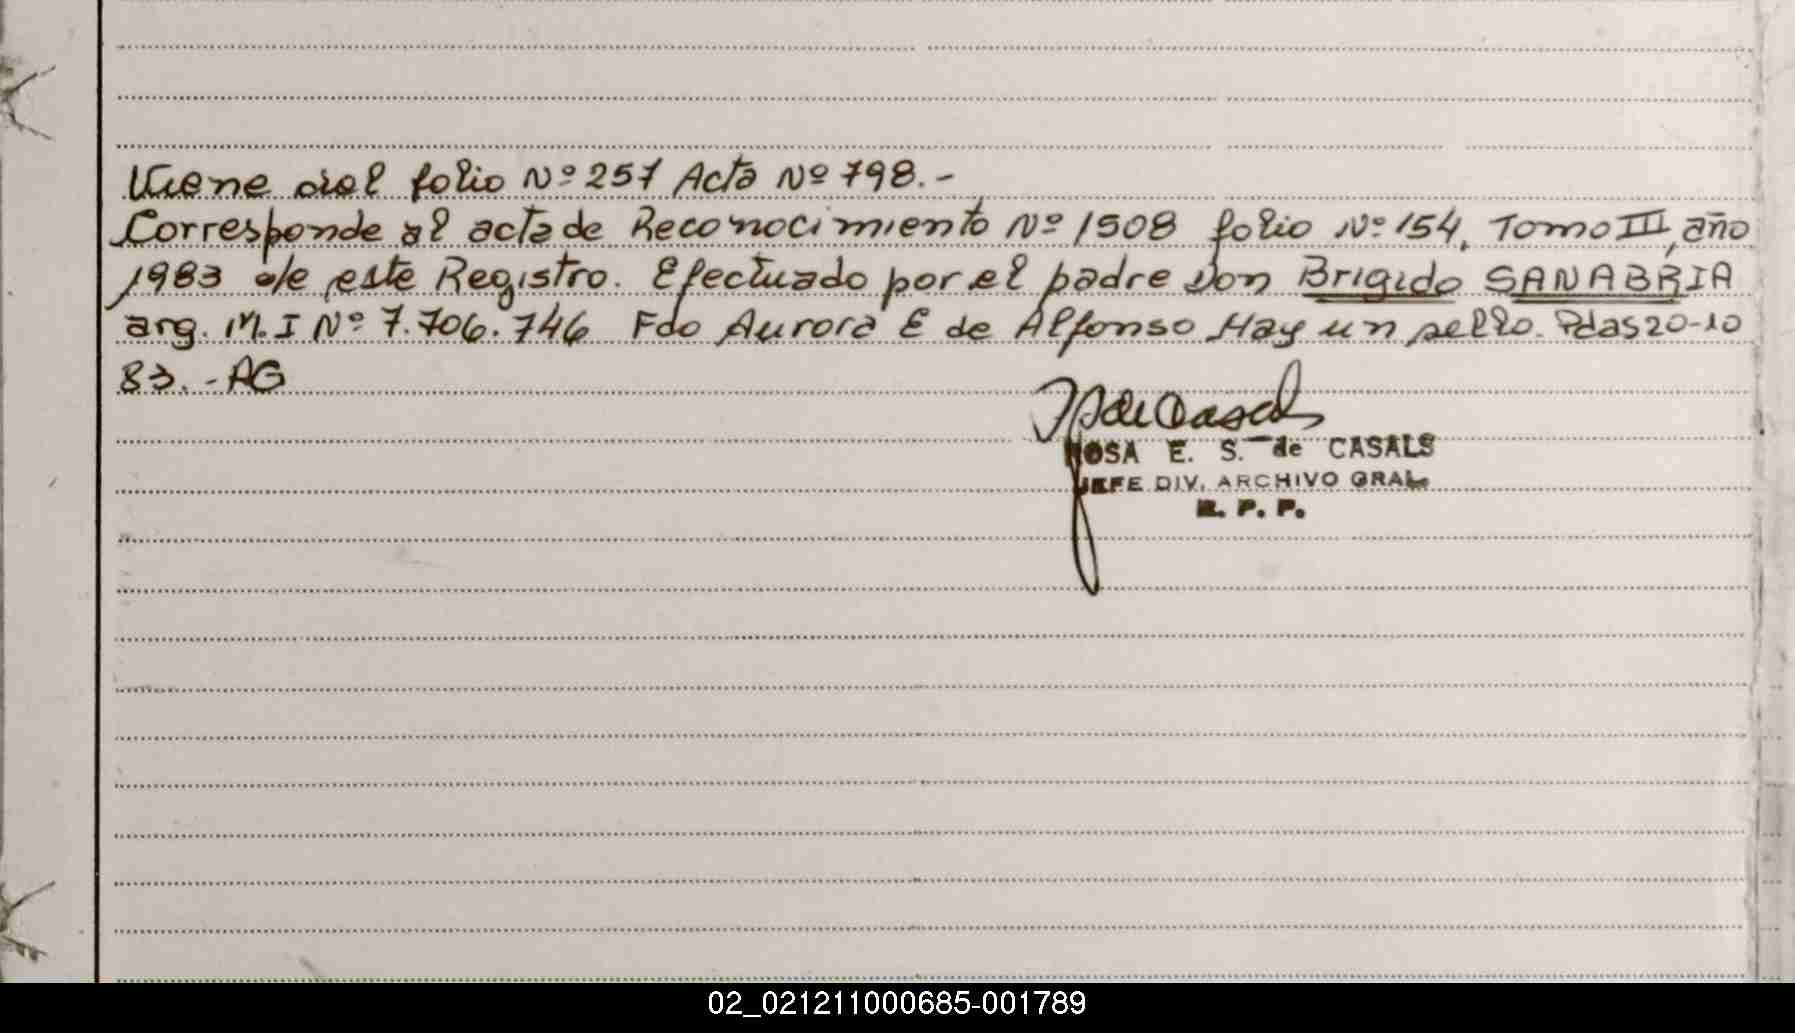 Viene del folio Nº 257 Acta Nº 798.-
Corresponde al acta de Reconocimiento Nº 1508 folio Nº 154, Tomo III, año
1983 de este Registro. Efectuado por el padre Don Brigido SANABRIA
arg. M.I Nº 7.706.746 Fdo Aurora E de Alfonso Hay un sello. Pdas 20-10
83.-AG
ROSA E. S. de CASALS
JEFE DIV. ARCHIVO GRAL.
R. P. P.
02_021211000685-001789